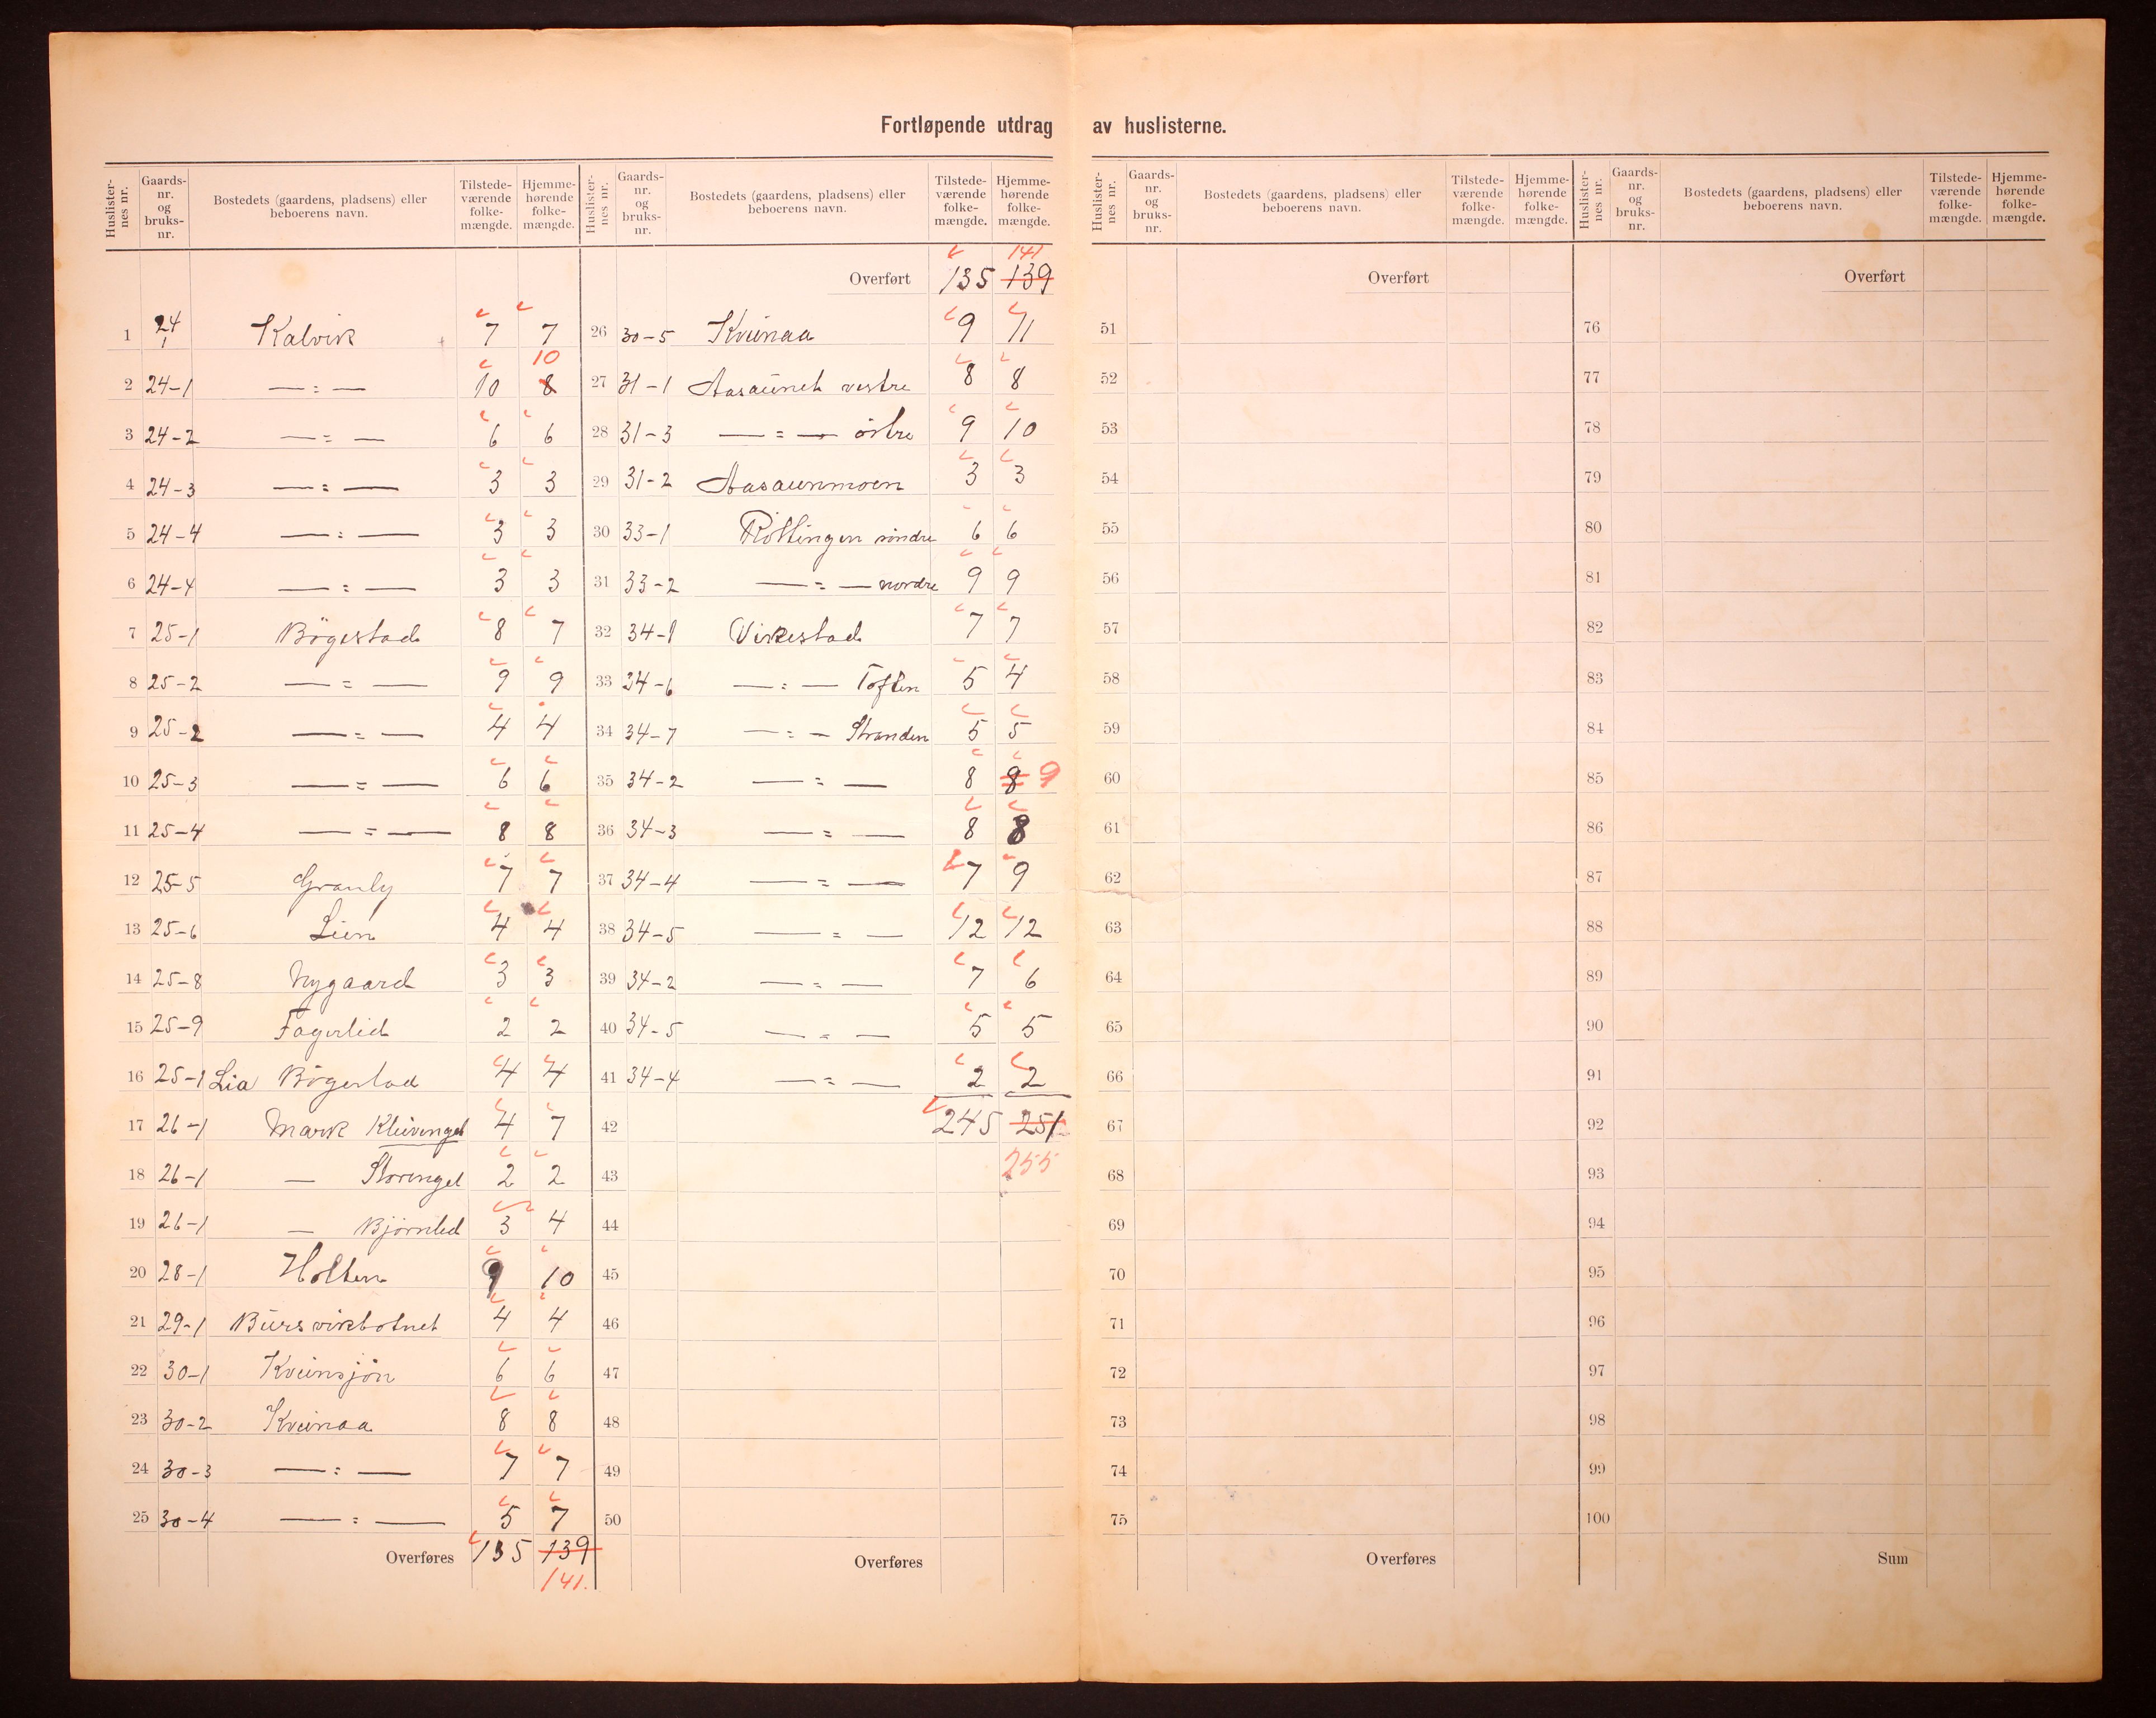 Fortløpende utdrag av huslisterne.
Huslisternes nr. Gaards-nr. og bruks-nr. Bostedets (gaardens, pladsens) eller beboerens navn. Tilstedeværende folkemængde. Hjemmehørende folkemængde.
1 24 1 Kalvik 7 7
2 24-1 — = — 10 8 10
3 24-2 — = — 6 6
4 24-3 — = — 3 3
5 24-4 — = — 3 3
6 24-4 — = — 3 3
7 25-1 Bögestad 8 7
8 25-2 — = — 9 9
9 25-2 — = — 4 4
10 25-3 — = — 6 6
11 25-4 — = — 8 8
12 25-5 Granly 7 7
13 25-6 Lien 4 4
14 25-8 Nygaard 3 3
15 25-9 Fagerlid 2 2
16 25-1 Lia Bögestad 4 4
17 26-1 Mark Kleivengel 4 7
18 26-1 — Storengel 2 2
19 26-1 — Björnlid 3 4
20 28-1 Holten 9 10
21 29-1 Bursvikbotnet 4 4
22 30-1 Kveinsjön 6 6
23 30-2 Kveinaa 8 8
24 30-3 — = — 7 7
25 30-4 — = — 5 7
Overføres 135 139
141.
Huslisternes nr. Gaards-nr. og bruks-nr. Bostedets (gaardens, pladsens) eller beboerens navn. Tilstedeværende folkemængde. Hjemmehørende folkemængde.
141
Overført 135 139
26 30-5 Kveinaa 9 11
27 31-1 Aasaunet vestre 8 8
28 31-3 — = — östre 9 10
29 31-2 Aasaunmoen 3 3
30 33-1 Röttingen söndre 6 6
31 33-2 — = — nordre 9 9
32 34-1 Virkestad 7 7
33 34-6 — = — Toften 5 4
34 34-7 — = — Stranden 5 5
35 34-2 — = — 8 8 9
36 34-3 — = — 8 8
37 34-4 — = — 7 9
38 34-5 — = — 12 12
39 34-2 — = — 7 6
40 34-5 — = — 5 5
41 34-4 — = — 2 2
42 245 251
43 255
44
45
46
47
48
49
50
Overføres
Huslisternes nr. Gaards-nr. og bruks-nr. Bostedets (gaardens, pladsens) eller beboerens navn. Tilstedeværende folkemængde. Hjemmehørende folkemængde.
Overført
51
52
53
54
55
56
57
58
59
60
61
62
63
64
65
66
67
68
69
70
71
72
73
74
75
Overføres
Huslisternes nr. Gaards-nr. og bruks-nr. Bostedets (gaardens, pladsens) eller beboerens navn. Tilstedeværende folkemængde. Hjemmehørende folkemængde.
Overført
76
77
78
79
80
81
82
83
84
85
86
87
88
89
90
91
92
93
94
95
96
97
98
99
100
Sum